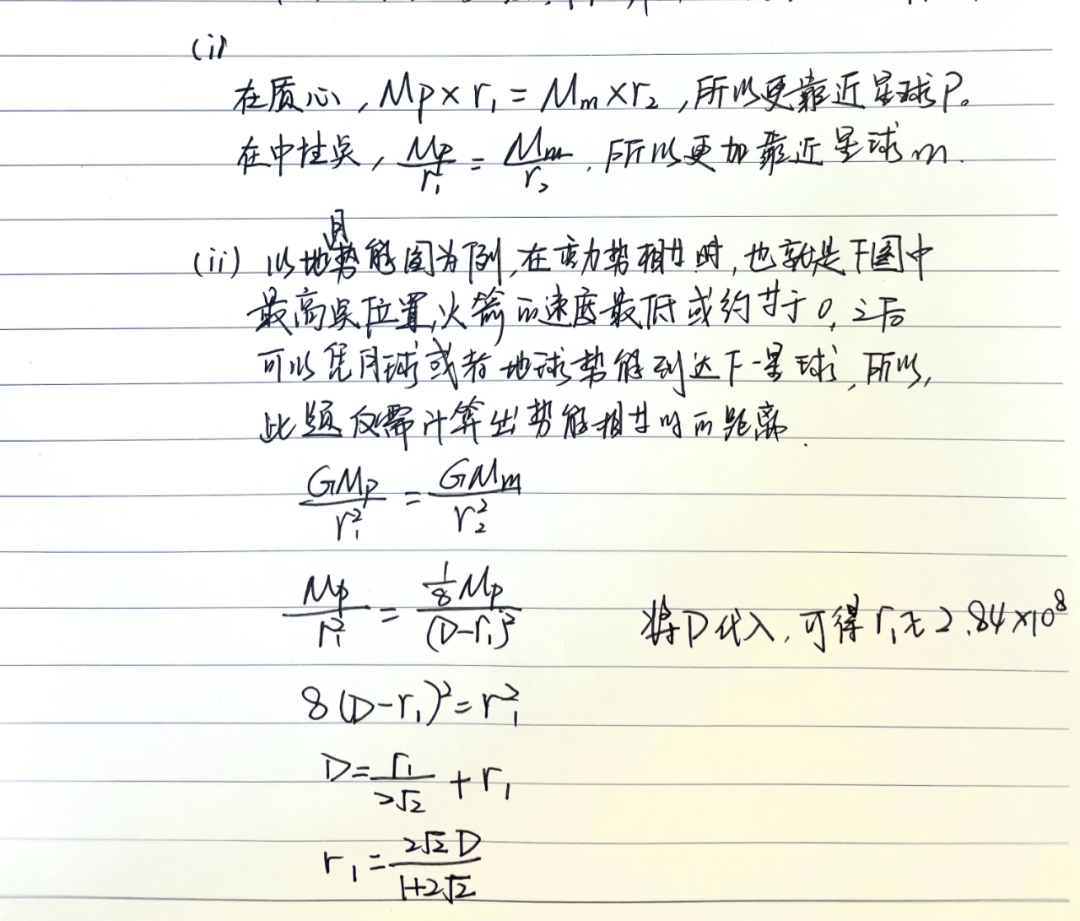 (i)
在质心, Mp×r₁ = Mm×r₂, 所以更靠近星球P。
在中性点, Mp/r₁² = Mm/r₂², 所以更加靠近星球m.
(ii) 以地月势能图为例, 在重力势相等时, 也就是下图中
最高点位置, 火箭的速度最低或约等于0, 之后
可以凭月球或者地球势能到达下一星球, 所以,
此题仅需计算出势能相等时的距离.
GMp/r₁² = GMm/r₂²
Mp/r₁² = ⅛Mp/(D-r₁)² 将D代入, 可得r₁为2.84×10⁸
8(D-r₁)² = r₁²
D = r₁/2√2 + r₁
r₁ = 2√2D/1+2√2